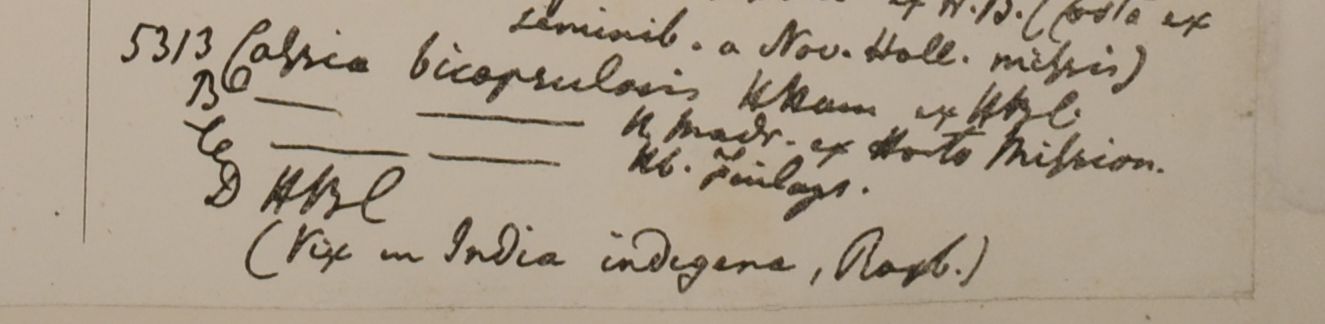 ex H.B. (costa ex
seminib. a Nov. Holl. missis)
5313 Cassia bicapsularis HHam ex HBC.
B — — H. madr. ex Horto Mission.
C — — Hb. Finlays.
D HBC
(Vix in India indigena, Roxb.)